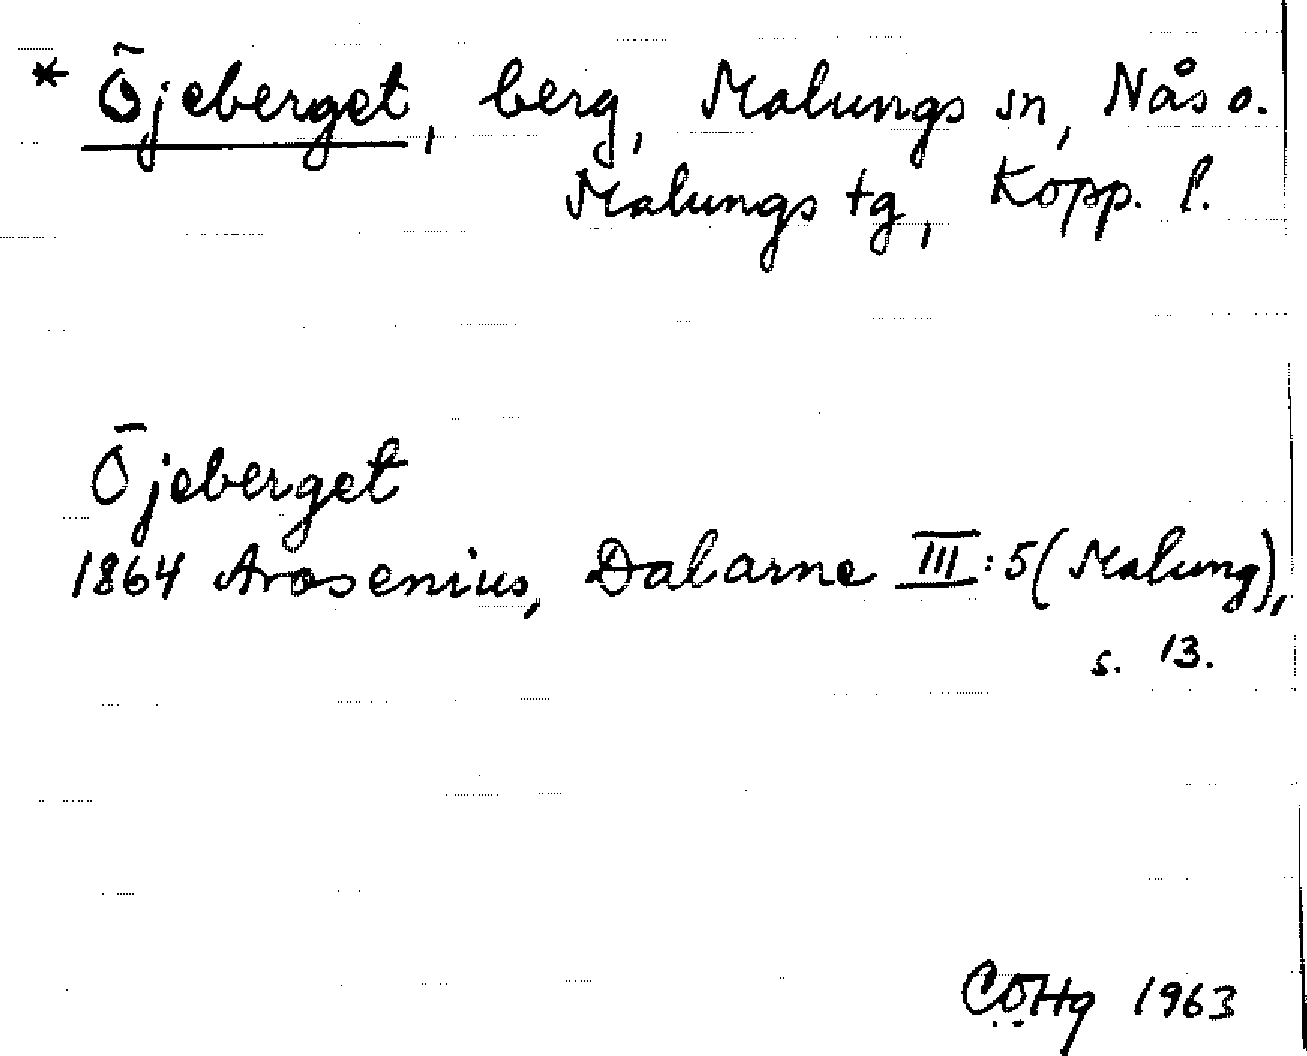 * Öjeberget, berg, Malungs sn, Nås o.
Malungs tg, Kopp. l.
Öjeberget
1864 Arosenius, Dalarne III:5 (Malung),
s. 13.
CÖHg 1963